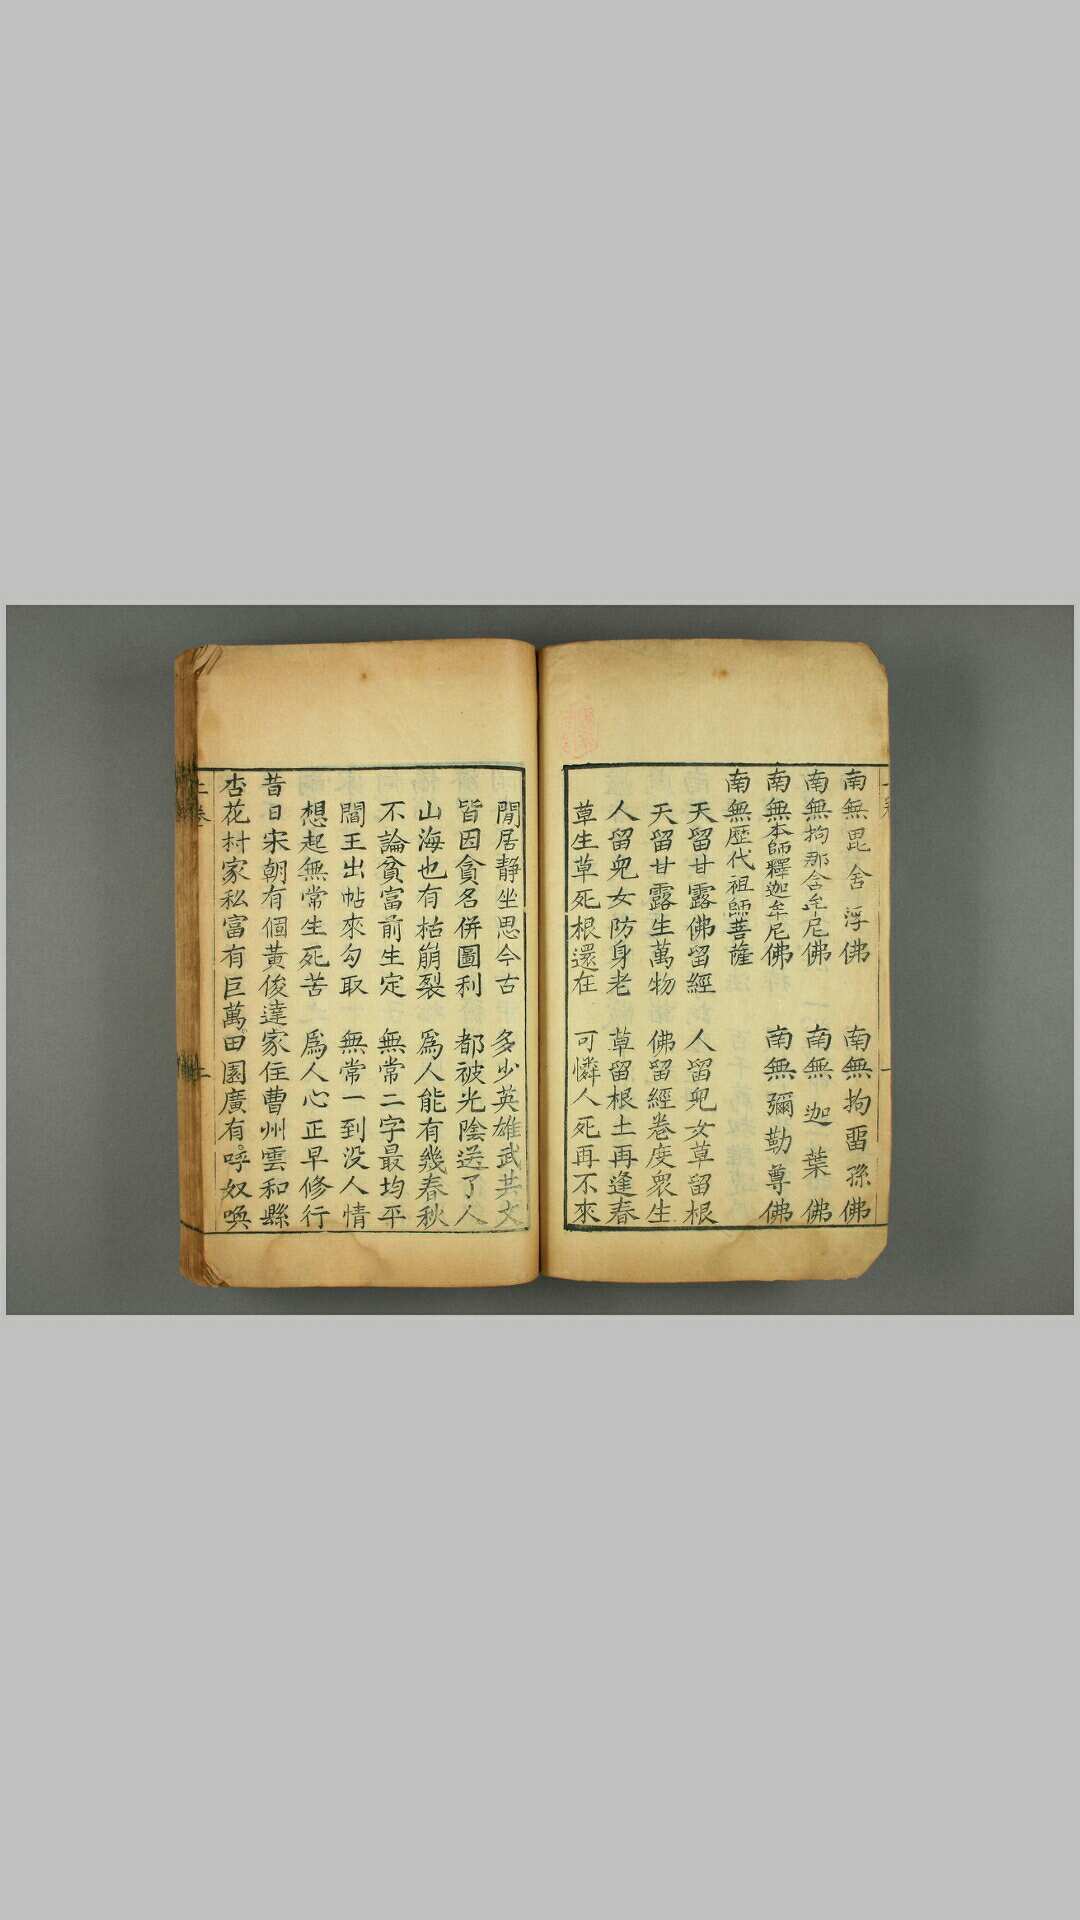 南無毘舍浮佛　南無拘畱孫佛
南無拘那含牟尼佛　南無迦葉佛
南無本師釋迦牟尼佛　南無彌勒尊佛
南無歷代祖師菩薩
天留甘露佛留經　人留兒女草留根
天留甘露生萬物　佛留經卷度衆生
人留兒女防身老　草留根土再逢春
草生草死根還在　可憐人死再不來
閒居靜坐思今古　多少英雄武共文
皆因貪名併圖利　都被光陰送了人
山海也有枯崩裂　爲人能有幾春秋
不論貧富前生定　無常二字最均平
閻王出帖來勾取　無常一到没人情
想起無常生死苦　爲人心正早修行
昔日宋朝有個黃俊達家住曹州雲和縣
杏花村家私富有巨萬田園廣有呼奴喚
上卷